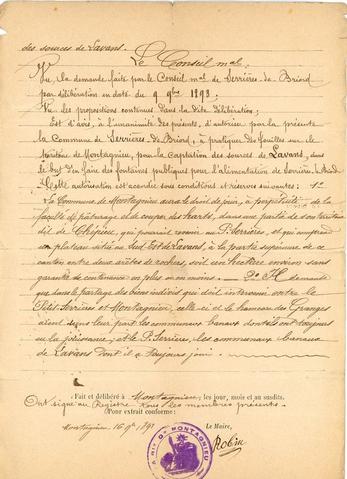 des sources de Lavans. Le Conseil mal.
Vu, la demande faite par le Conseil mal de Serrières-de-Briord
par délibération en date du 9 9bre 1893;
Vu les propositions contenues dans la dite délibération;
Est d'avis, à l'unanimité des présents, d'autoriser par la présente
la Commune de Serrières-de-Briord, à pratiquer des fouilles sur le
territoire de Montagnieu, pour la captation des sources de Lavans, dans
le but d'en faire des fontaines publiques pour l'alimentation de Serrières-de-Briord
Cette autorisation est accordée sous conditions et réserves suivantes: 1º
La Commune de Montagnieu aura le droit de jouir, à perpétuité de la
faculté de pâturage et de couper des
dit de qui pourrait revenir au P. Serrières, et qui comprend
un plateau situé au Sud-Est de Lavans, à la partie supérieure de ce
canton entre deux arêtes de roches, soit un hectare environ sans
garantie de contenance en plus ou en moins. 2º Il demande
que dans le partage des biens indivis qui doit intervenir entre le
Petit-Serrières et Montagnieu, celle-ci et le hameau des Granges
aient dans leur part les communaux dont ils ont toujours
eu la jouissance; et le P. Serrières, les communaux
de Lavans dont il a toujours joui.
Fait et délibéré à Montagnieu, les jour, mois et an susdits.
Ont signé au Registre tous les membres présents.
Pour extrait conforme:
Montagnieu 16 9bre 1893 Le Maire,
Robin
MRIE DE MONTAGNIEU